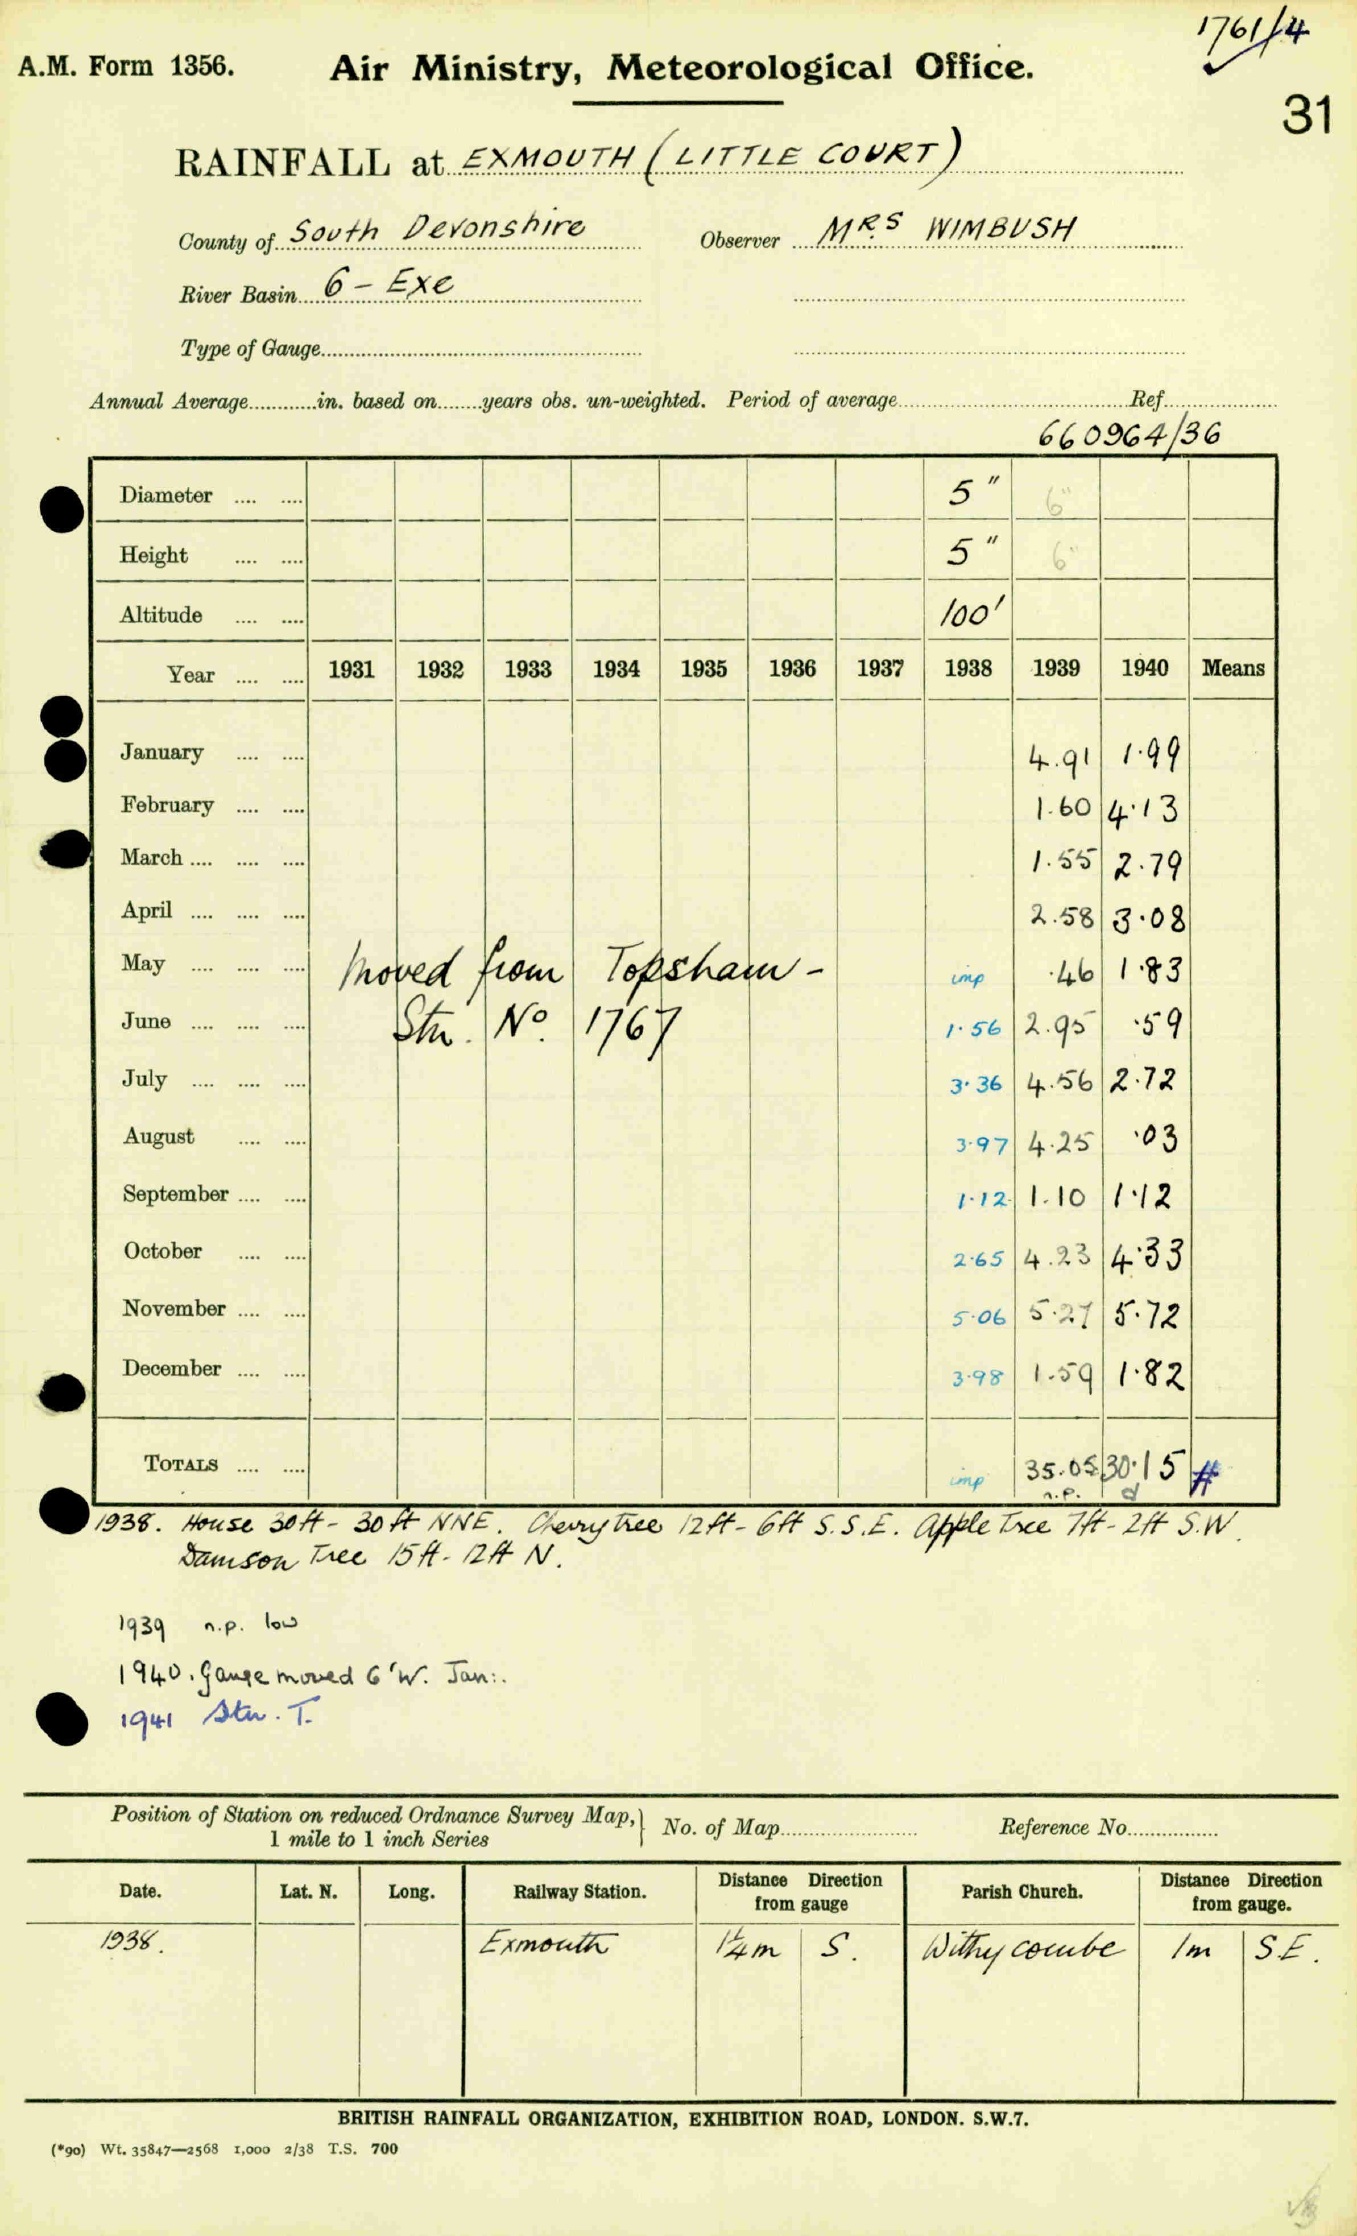 1761/4
A.M. Form 1356. Air Ministry, Meteorological Office.
31
RAINFALL at EXMOUTH (LITTLE COURT)
County of South Devonshire Observer MRS WIMBUSH
River Basin 6 - Exe
Type of Gauge
Annual Average in. based on years obs. un-weighted. Period of average Ref.
660964/36
Diameter 5" 6"
Height 5" 6"
Altitude 100'
Year 1931 1932 1933 1934 1935 1936 1937 1938 1939 1940 Means
January 4.91 1.99
February 1.60 4.13
March 1.55 2.79
April 2.58 3.08
May Moved from Topsham - imp .46 1.83
June Stn. No. 1767 1.56 2.95 .59
July 3.36 4.56 2.72
August 3.97 4.25 .03
September 1.12 1.10 1.12
October 2.65 4.23 4.33
November 5.06 5.27 5.72
December 3.98 1.59 1.82
TOTALS imp 35.05 30.15 #
n.p. d
1938. House 30ft - 30ft NNE. Cherry tree 12ft - 6ft S.S.E. Apple Tree 7ft - 2ft S.W.
Damson Tree 15ft - 12ft N.
1939 n.p. low
1940. Gauge moved 6'W. Jan:.
1941 Stn. T.
Position of Station on reduced Ordnance Survey Map, 1 mile to 1 inch Series } No. of Map Reference No.
Date. Lat. N. Long. Railway Station. Distance Direction from gauge Parish Church. Distance Direction from gauge.
1938. Exmouth 1¼m S. Withycombe 1m S.E.
BRITISH RAINFALL ORGANIZATION, EXHIBITION ROAD, LONDON. S.W.7.
(*90) Wt. 35847—2568 1,000 2/38 T.S. 700